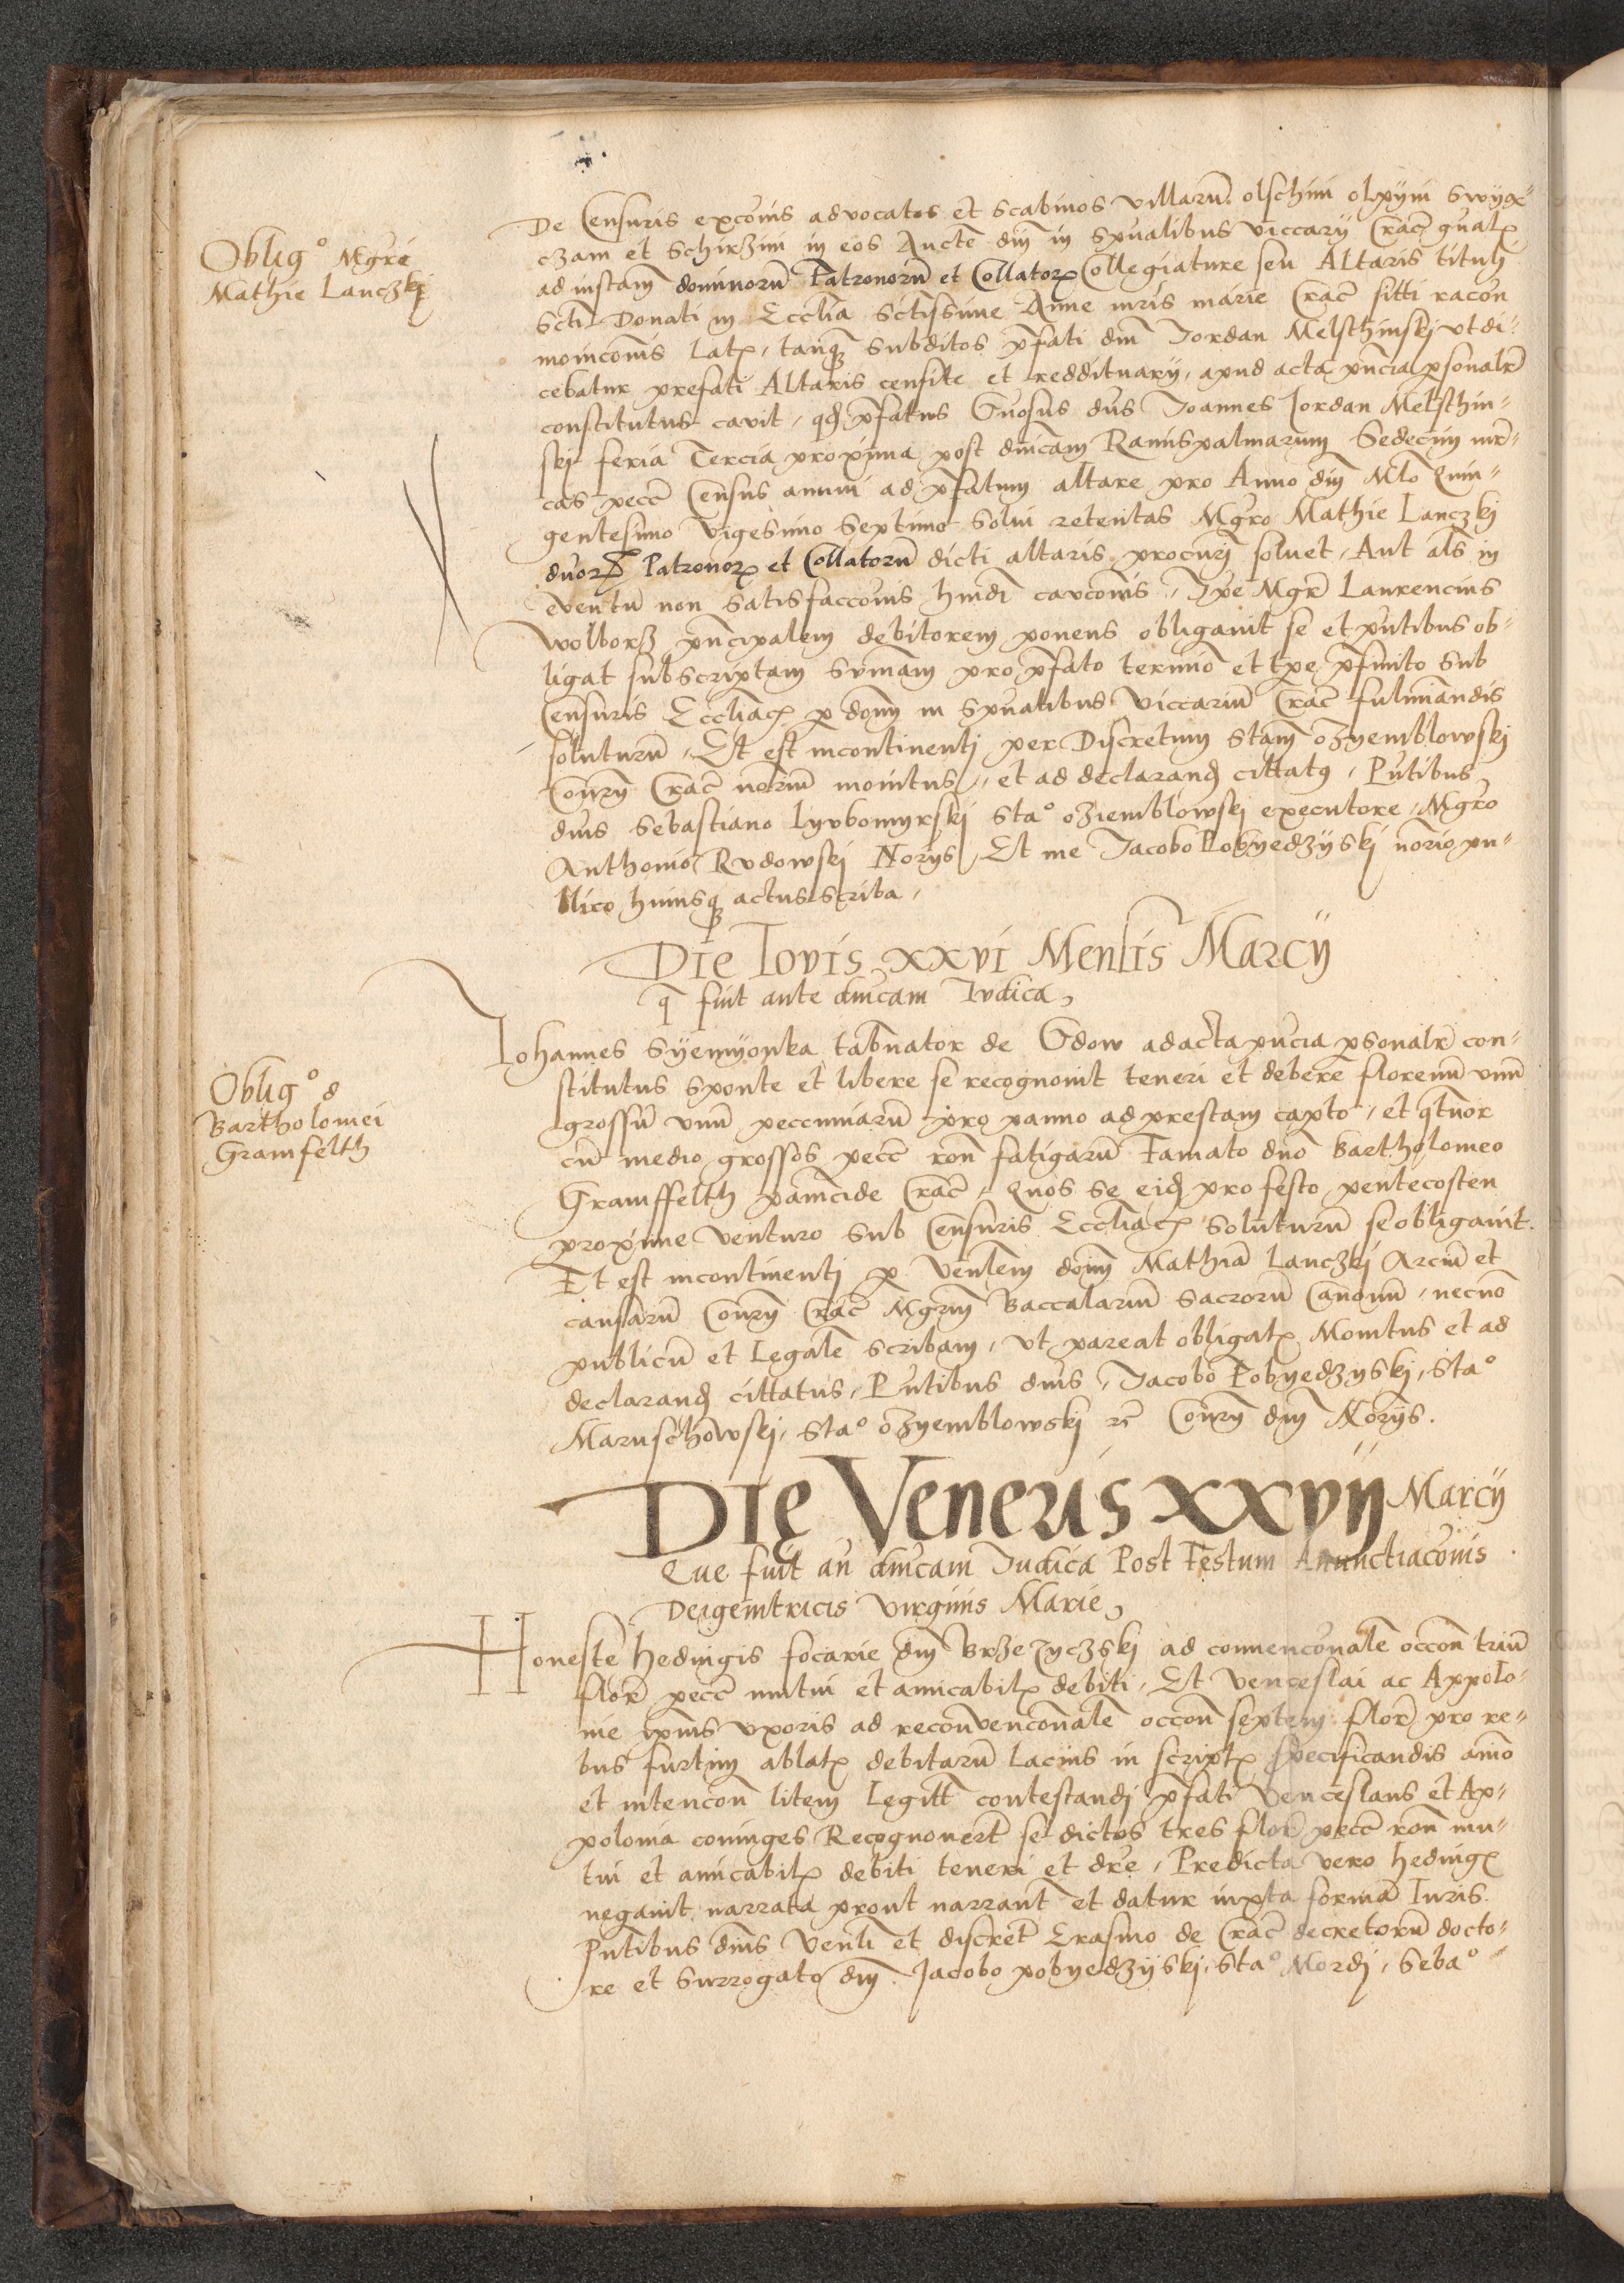 De Censuris excōnis advocatos et scabinos villarū olschini olpyni Swÿā⸗
czam et Schirzini in eos Aucte dn̄i in spūalibus viccarÿ Cracē gn̄alꝫ
Obligº Mgr̄i
Mathie Lanczkj
ad instan̄ dominorū Patronorū et Collatorꝫ Collegiature seu Altaris tituli
Scti Donati in Ecclīa Sctissime Anne mr̄is marie Cracē sitti racōn
monicōnis Latꝫ, tanqꝫ Subditos p̄fati dn̄i Jordan Melschinskj vt di⸗
cebatur prefati Altaris censite et reddituarÿ, apud acta pn̄cia psonalr̄
constitutus cavit, qd̄ p̄fatus Gn̄osus dn̄s Joannes Jordan Melschin⸗
skj feria Tercia proxima post dn̄icam Ramispalmarum Sedecim mr̄⸗
cas pecc̄ Census annui ad p̄fatum altare pro Anno dn̄i Mlō Quin⸗
gentesimo Vigesimo Septimo solui retentas Mgr̄o Mathie Lanczkj
dn̄orꝫ Patronorꝫ et Collatorū dicti altaris procurj soluet, Aut als̄ in
eventū non satisfaccōnis hm̄di caucōnis, Ipe Mgr̄ Laurencius
Wolborz pn̄cipalem debitorem ponens obligauit se et pn̄tibus ob⸗
ligat subscriptam sum̄am pro p̄fato termīo et tpe p̄finito Sub
Censuris Eccliacꝫ p don̄m in spūalibus Viccariū Cracē fulminandis
soluturū, Et est incontinentj per Discretum Stan̄ ozyemblowskj
Con̄ry Cracē noriū monitus, et ad declarand̄ cittatꝫ, Pn̄tibus
dn̄is Sebastiano Lyubomyrskj Staº oziemblowskj executore, Mgr̄o
Anthonio Rudowskj Norÿs, Et me Jacobo Pobyedzÿskj nōrio pu⸗
blico huiusqꝫ actus scriba,
Die Jovis xxvi Mensis Marcÿ
q̄ fuit ante dn̄icam Judica,
Johannes Syemÿonka tabn̄ator de Gdow ad acta pn̄cia psonalr̄ con⸗
stitutus sponte et libere se recognouit teneri et debere florenū vnū
Obligº d
Bartholomei
Gramfelth
grossū vnū peccuniarū pro panno ad prestam capto, et q̄tuor
cū medio grossos pecc̄ ron̄ fatigarū Famato dn̄o Bartholomeo
Gramffelth pan̄icide Cracē, Quos se eid̄ pro festo pentecosten
proxime venturo sub Censuris Eccliacꝫ soluturū se obligauit.
Et est incontinentj p Venlem don̄m Mathiā Lanczkj Arciū et
causarū Con̄ry Cracē Mgr̄m Baccalariū sacrorū Canonū, necnō
publicū et Legalē scribam, vt pareat obligatꝫ Monitus et ad
declarand̄ cittatus, Pn̄tibus dn̄is, Jacobo Pobyedzyskj, Staº
Maruschowskj, Staº ozyemblowskj et Con̄ry dn̄i Norÿs.
Die Veneris xxvij Marcÿ
Que fuit an̄ dn̄icam Judica Post Festum Annunctiacōnis
Deigenitricis Virginis Marie,
Honeste hedingis focarie dn̄i Brzezyczskj ad conuencōnalē occōn triū
flor̄ pecc̄ mutui et amicabilꝫ debiti, Et Venceslai ac Appolo⸗
nie ipius vxoris ad reconvencōnalē occōn septem flor̄ pro re⸗
bus furtim ablatꝫ debitarū Lacius in scriptꝫ specificandis anīo
et intencōn litem Legitt̄ contestandj p̄fati Venceslaus et Ap⸗
polonia coniuges Recognouer̄t se dictos tres flor̄ pecc̄ ron̄ mu⸗
tui et amicabilꝫ debiti teneri et dr̄e, Predicta vero hedingꝫ
negauit narrata prout narrant̄ et datur iuxta formā Juris.
Pn̄tibus dn̄is Venlī et discret̄ Erasmo de Cracē decretorū docto⸗
re et surrogato dn̄i. Jacobo pobyedzÿskj, Staº Mordj, Sebaº